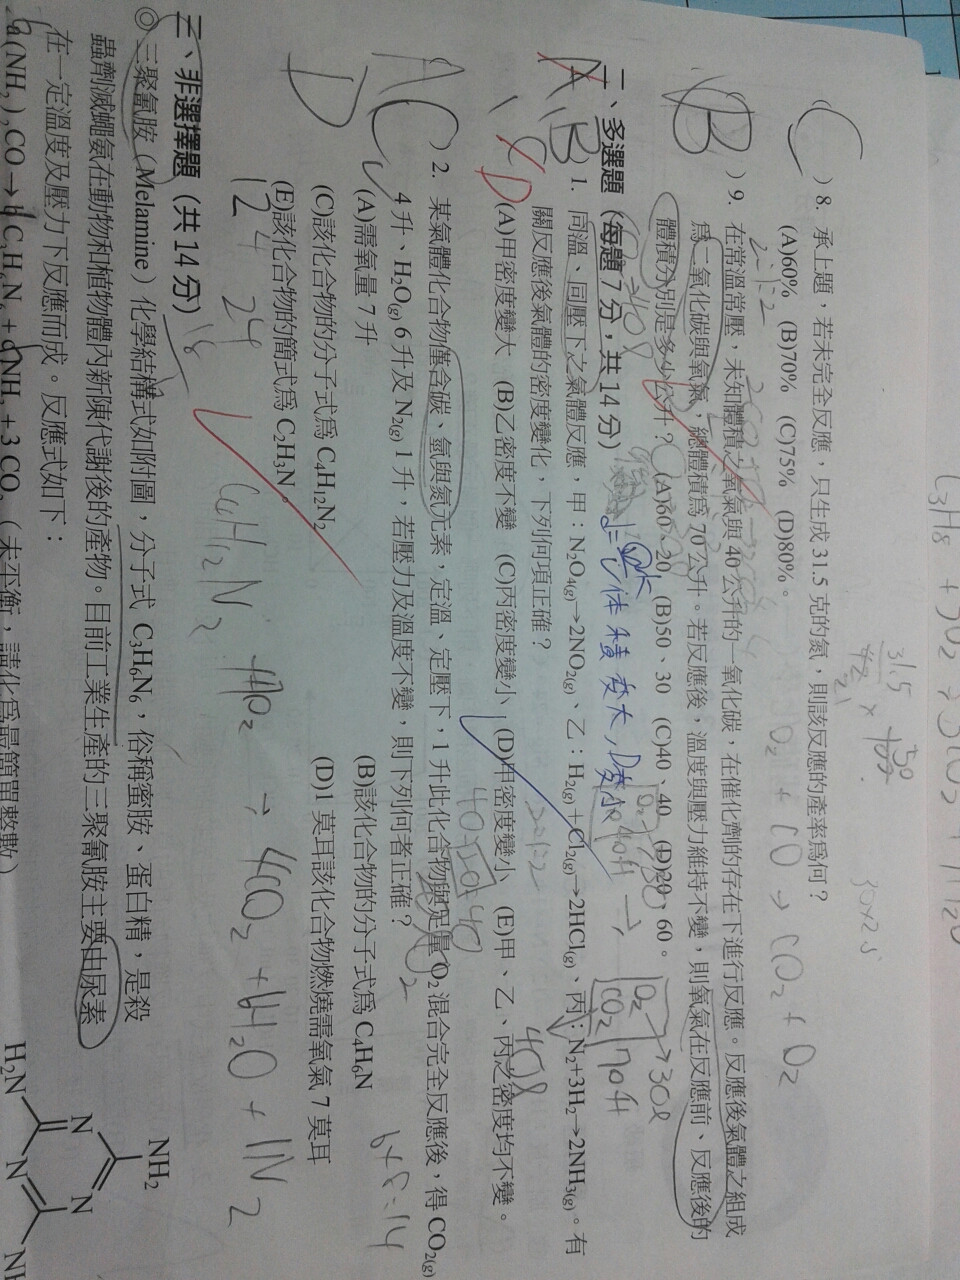 C₃H₈ + 5O₂ → 3CO₂ +
( C ) 8. 承上題，若未完全反應，只生成 31.5 克的氮，則該反應的產率為何？
(A)60% (B)70% (C)75% (D)80%。
O₂ + CO → CO₂ + O₂
( B ) 9. 在常溫常壓，未知體積之氧氣與 40 公升的一氧化碳，在催化劑的存在下進行反應。反應後氣體之組成
為二氧化碳與氧氣，總體積為 70 公升。若反應後，溫度與壓力維持不變，則氧氣在反應前、反應後的
體積分別是多少公升？ (A)60、20 (B)50、30 (C)40、40 (D)20、60。
二、多選題（每題 7 分，共 14 分）
體積變大，D變小
1. 同溫、同壓下之氣體反應，甲：N₂O₄(g)→2NO₂(g)、乙：H₂(g)＋Cl₂(g)→2HCl(g)、丙：N₂+3H₂→2NH₃(g)。有
關反應後氣體的密度變化，下列何項正確？
(A)甲密度變大 (B)乙密度不變 (C)丙密度變小 (D)甲密度變小 (E)甲、乙、丙之密度均不變。
( ACD ) 2. 某氣體化合物僅含碳、氫與氮元素，定溫、定壓下，1 升此化合物與足量 O₂ 混合完全反應後，得 CO₂(g)
4 升、H₂O(g) 6 升及 N₂(g) 1 升，若壓力及溫度不變，則下列何者正確？
(A)需氧量 7 升 (B)該化合物的分子式為 C₄H₆N
(C)該化合物的分子式為 C₄H₁₂N₂ (D)1 莫耳該化合物燃燒需氧氣 7 莫耳
(E)該化合物的簡式為 C₂H₃N。
6+8=14
C₄H₁₂N₂ + 7O₂ → 4CO₂ + 6H₂O + 1N₂
三、非選擇題（共 14 分）
◎ 三聚氰胺（Melamine）化學結構式如附圖，分子式 C₃H₆N₆，俗稱蜜胺、蛋白精，是殺
蟲劑滅蠅氨在動物和植物體內新陳代謝後的產物。目前工業生產的三聚氰胺主要由尿素
在一定溫度及壓力下反應而成。反應式如下：
a (NH₂)₂CO → b C₃H₆N₆ + c NH₃ + 3 CO₂（未平衡，請化為最簡單整數）
NH₂
N N
H₂N N